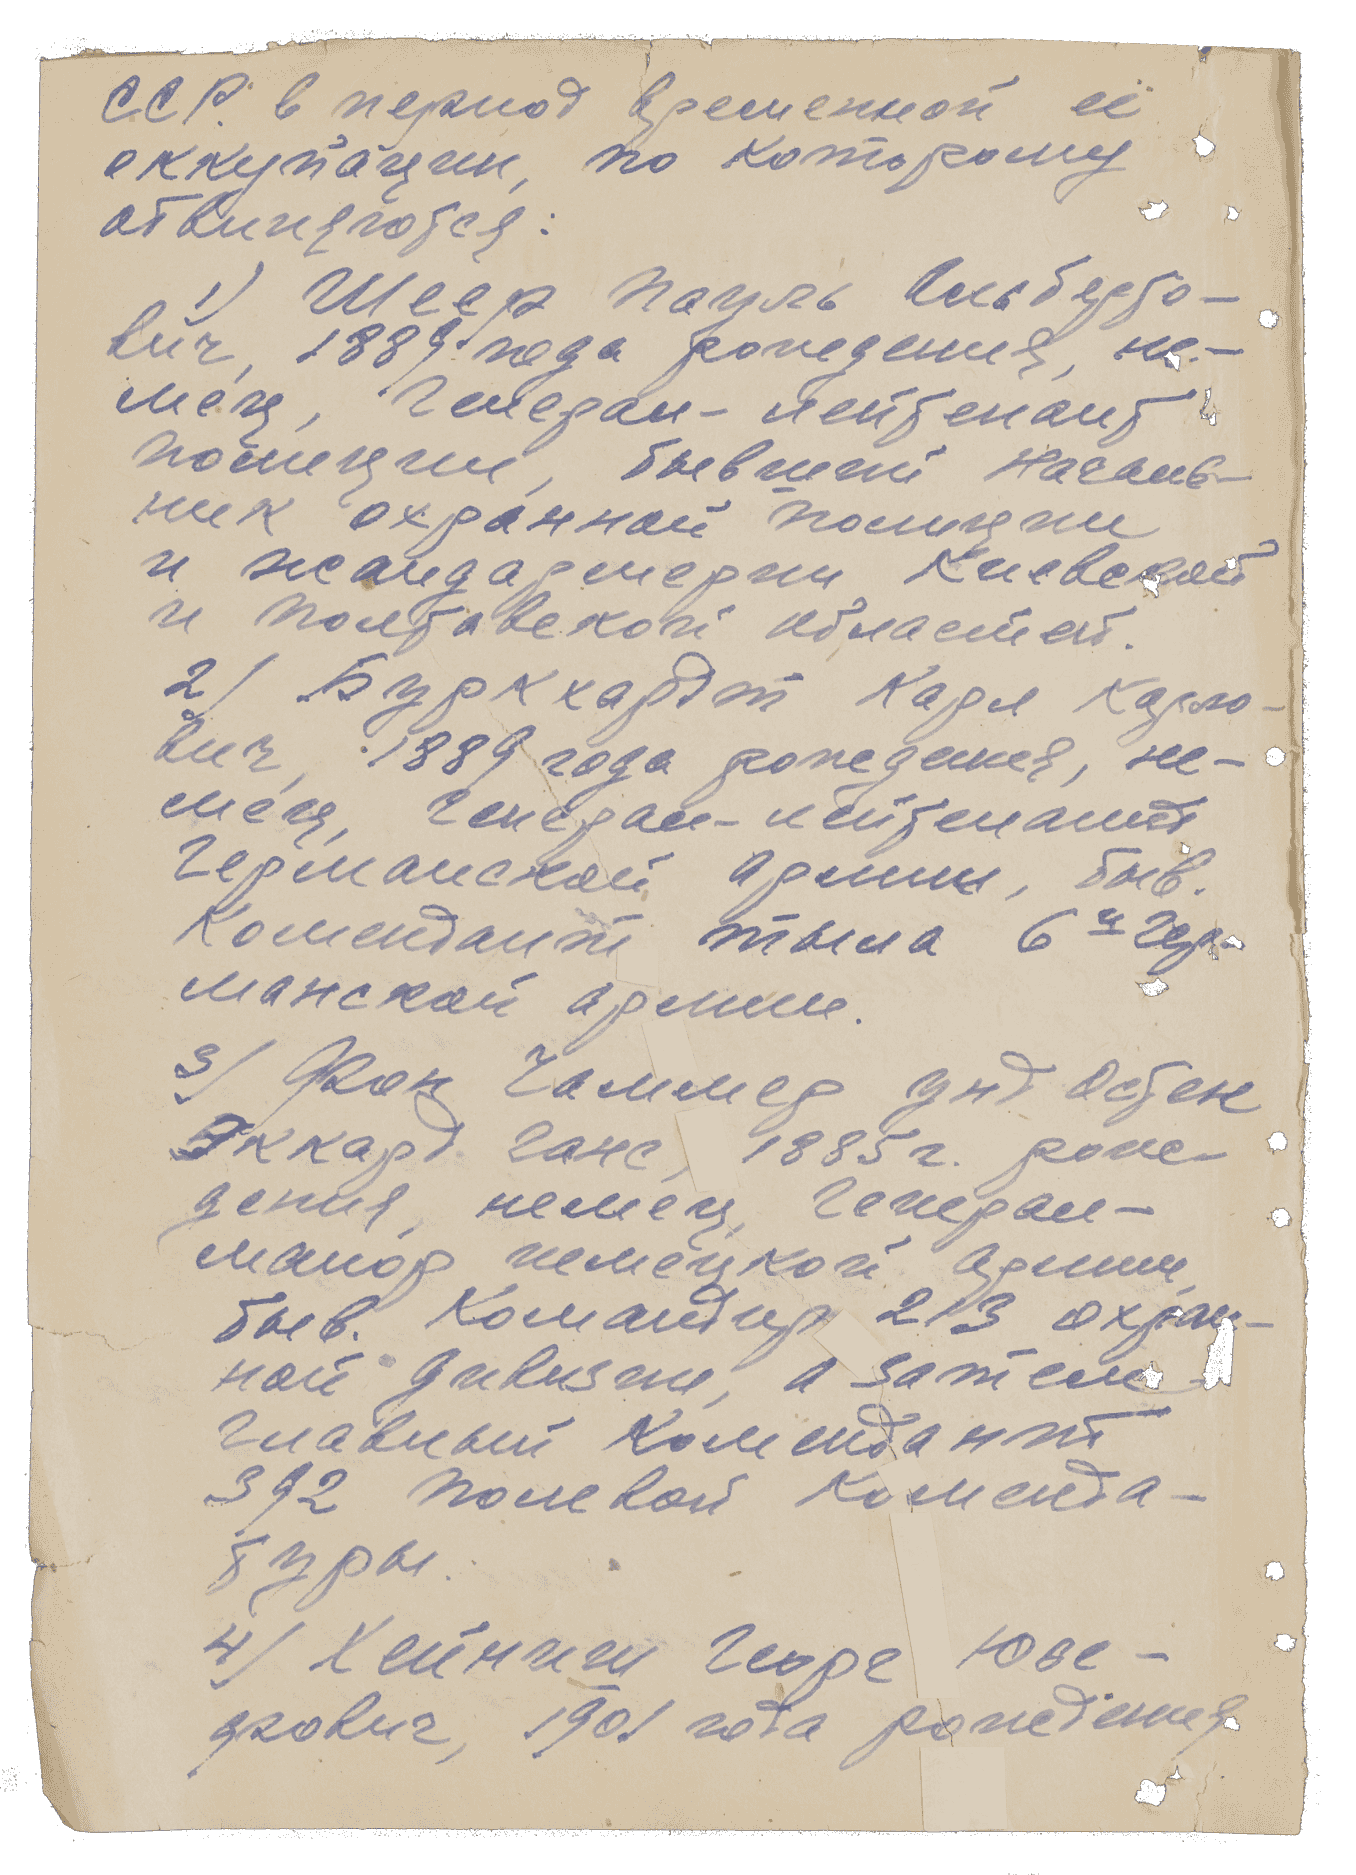 ССР в период временной её
оккупации, по которому
обвиняются:
1) Шеер Пауль Альберто-
вич, 1889 года рождения, не-
мец, генерал-лейтенант
полиции, бывший началь-
ник охранной полиции
и жандармерии Киевской
и Полтавской областей.
2/ Буркхардт Карл Карло-
вич, 1889 года рождения, не-
мец, генерал-лейтенант
германской армии, быв.
комендант тыла 6й гер-
манской армии.
3/ Фон Чаммер унд Остен
Эккард Ганс, 1885 г. рож-
дения, немец, генерал-
майор немецкой армии,
быв. командир 213 охран-
ной дивизии, а затем
главный комендант
392 полевой коменда-
туры.
4/ Хейниш Георг Юзе-
фович, 1901 года рождения